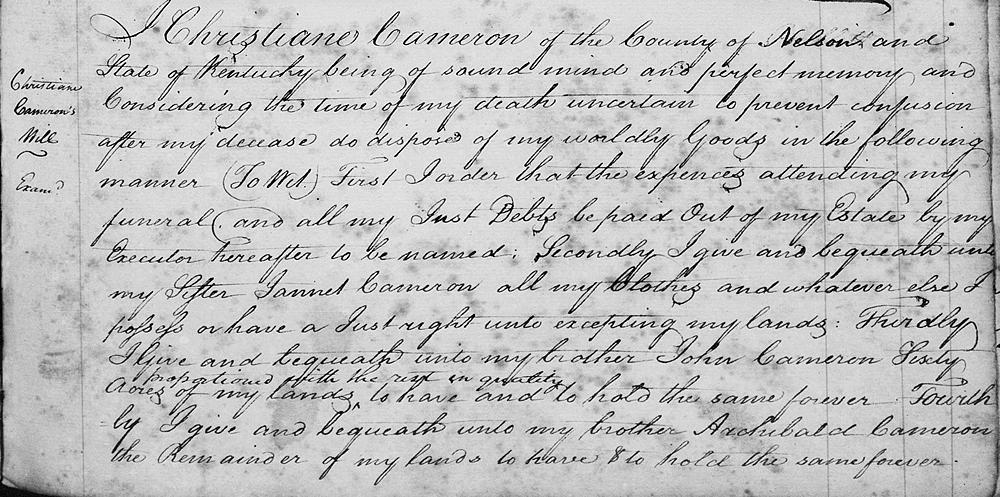 I Christiane Cameron of the County of Nelson and
State of Kentucky being of sound mind and perfect memory and
Christiane
Cameron's
Will
Exam'd
Considering the time of my death uncertain to prevent confusion
after my decease do dispose of my worldly Goods in the following
manner (To Wit.) First I order that the expences attending my
funeral, and all my Just Debts be paid Out of my Estate by my
Executor hereafter to be named; Secondly I give and bequeath unto
my Sister Jannet Cameron all my Clothes and whatever else I
possess or have a Just right unto excepting my lands: Thirdly
I give and bequeath unto my brother John Cameron Sixty
proportioned with the rest in quality
Acres of my lands ^ to have and to hold the same forever Fourth
=ly I give and bequeath unto my brother Archibald Cameron
the Remainder of my lands to have & to hold the same forever.